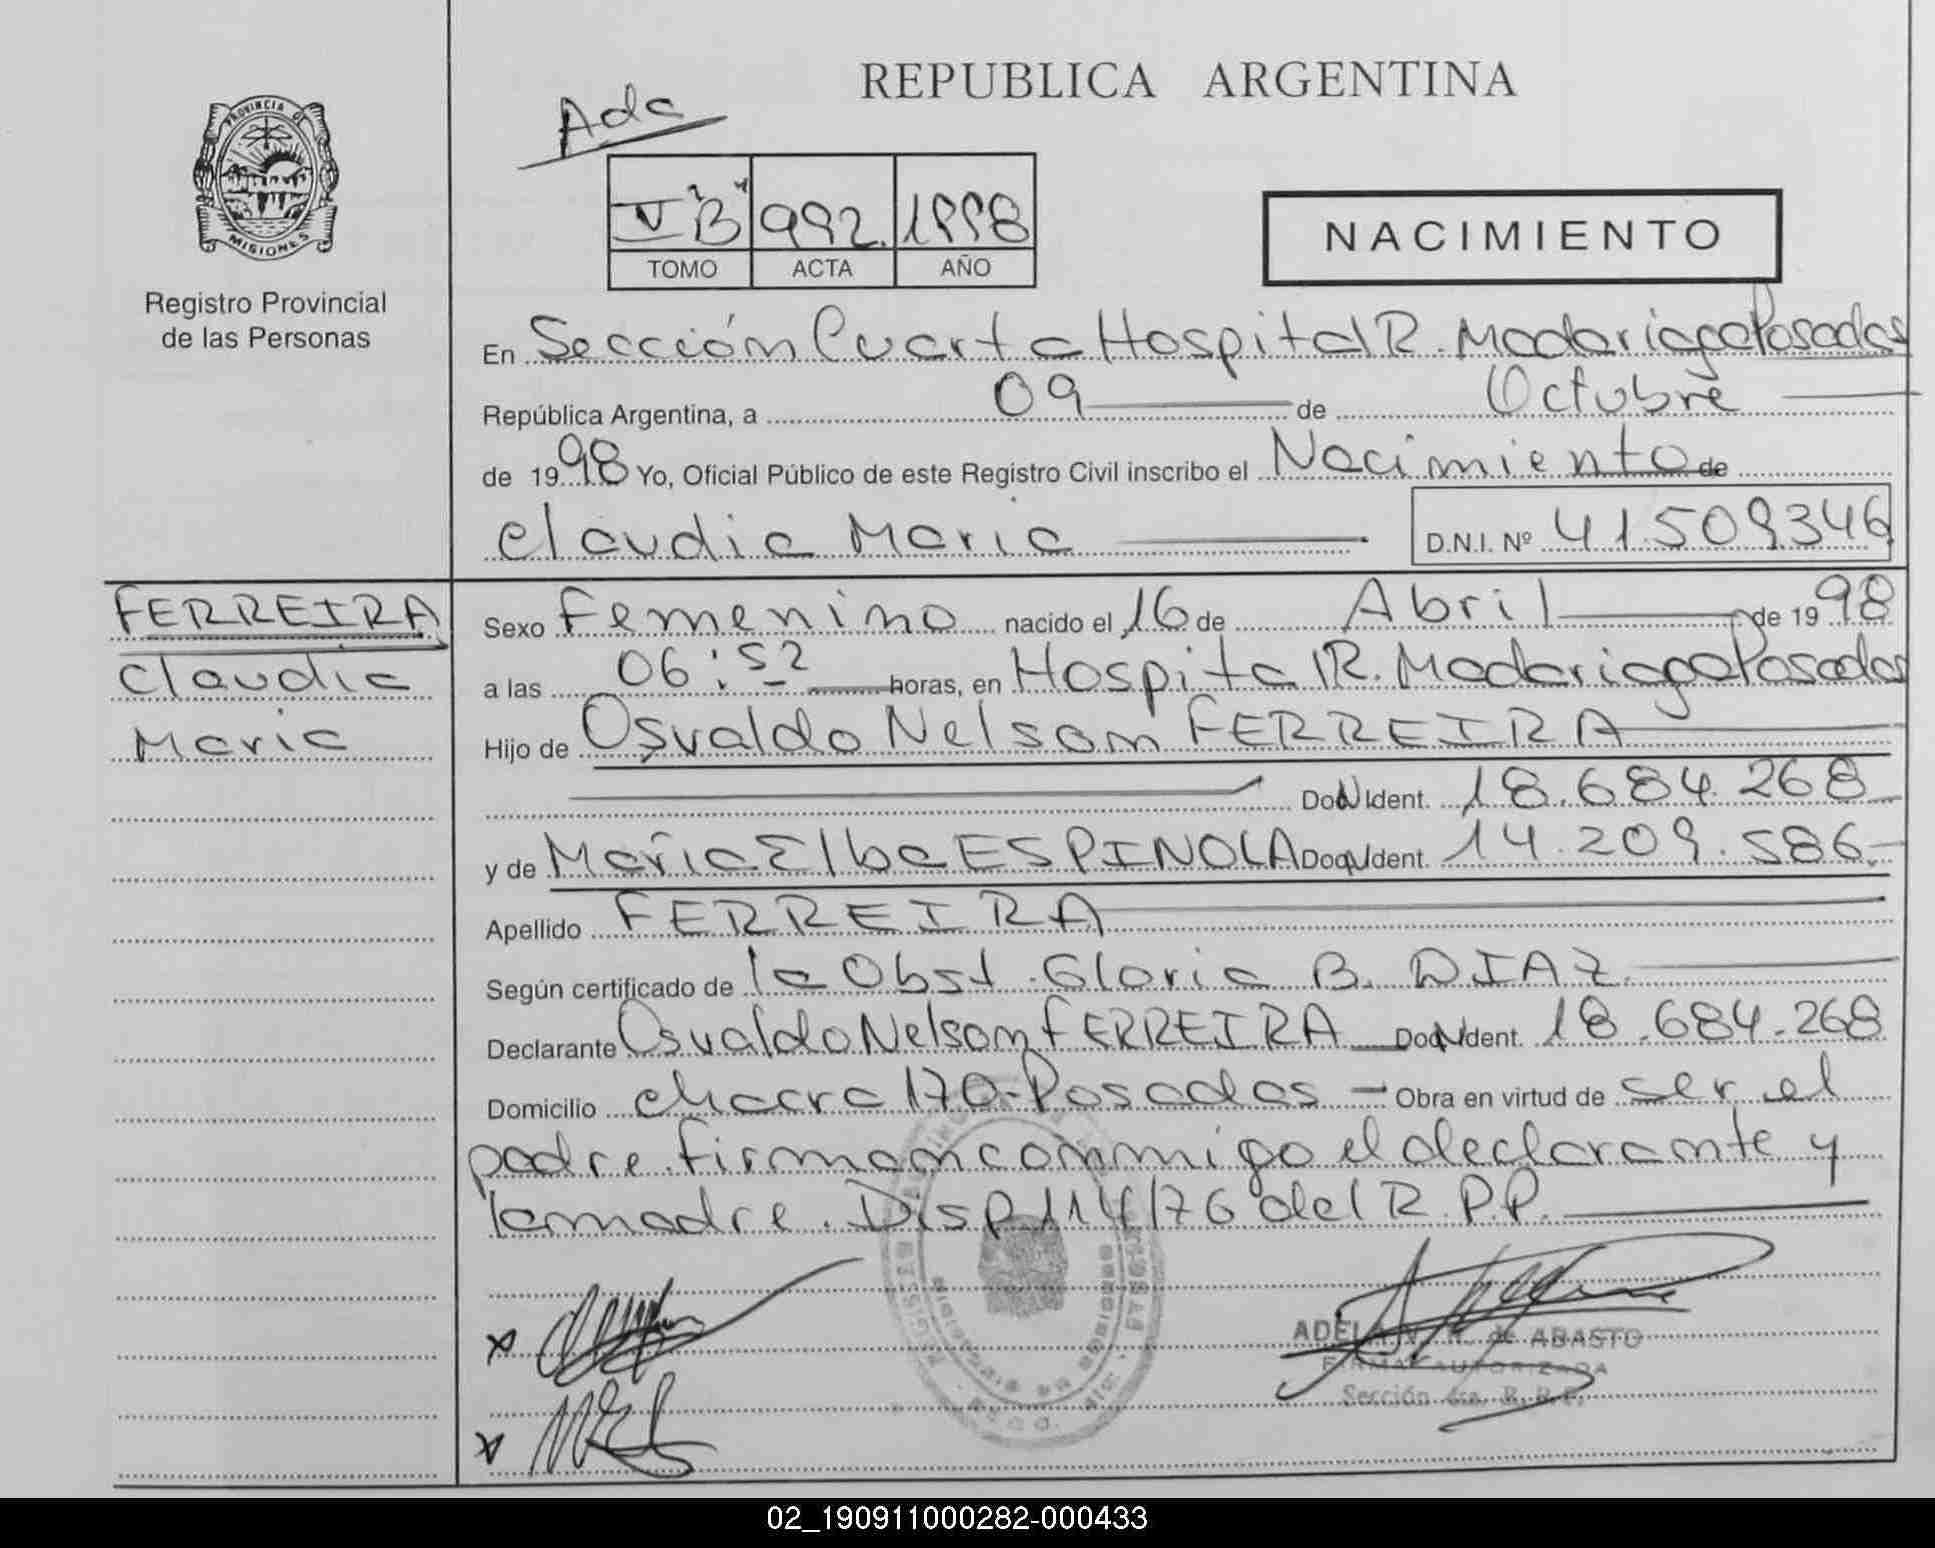 REPUBLICA ARGENTINA
Ada
PROVINCIA DE
MISIONES
V B 992. 1998
TOMO ACTA AÑO
NACIMIENTO
Registro Provincial
de las Personas
En Sección Cuarta Hospital R. Madariaga Posadas
República Argentina, a 09 de Octubre
de 1998 Yo, Oficial Público de este Registro Civil inscribo el Nacimiento de
Claudia Maria D.N.I. Nº 41.509.346
FERREIRA
Claudia
Maria
Sexo Femenino nacido el 16 de Abril de 1998
a las 06:52 horas, en Hospital R. Madariaga Posadas
Hijo de Osvaldo Nelson FERREIRA
Ident. 18.684.268
y de Maria Elba ESPINOLA Ident. 14.209.586.
Apellido FERREIRA
Según certificado de la Obst. Gloria B. DIAZ.
Declarante Osvaldo Nelson FERREIRA Ident. 18.684.268
Domicilio chacra 170-Posadas - Obra en virtud de ser el
padre. firman conmigo el declarante y
la madre. Disp 114/76 del R.P.P.
ADELA V. de ABASTO
FIRMA AUTORIZADA
Sección 4ta. R.P.P.
02_190911000282-000433